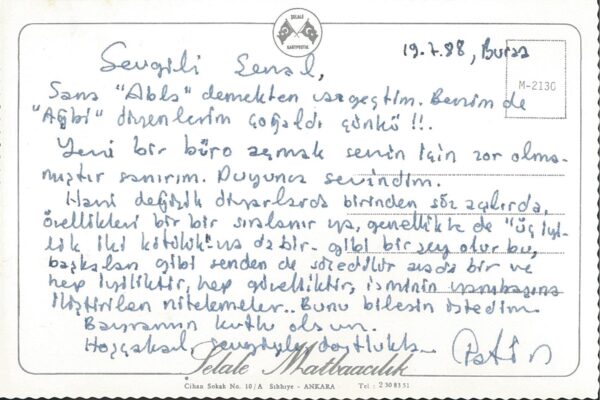 ŞELALE
KARTPOSTAL
19.7.88, Bursa
M-2130
Sevgili Şenal,
Sana "Abla" demekten vazgeçtim. Benim de
"Ağbi" diyenlerim çoğaldı çünkü !!.
Yeni bir büro açmak senin için zor olma-
mıştır sanırım. Duyunca sevindim.
Hani değişik diyarlarda birinden söz açılırda,
özellikleri bir bir sıralanır ya, genellikle de "üç iyi-
lik iki kötülük" ya da bir- gibi bir şey olur bu,
başkaları gibi senden de sözedilir arada bir ve
hep iyiliktir, hep güzelliktir, isminin yanıbaşına
iliştirilen nitelemeler.. Bunu bilesin istedim.
Bayramın kutlu olsun.
Hoşçakal, sevgiyle dostlukla..
Şelale Matbaacılık
Cihan Sokak No. 10/A Sıhhıye - ANKARA Tel : 2308351